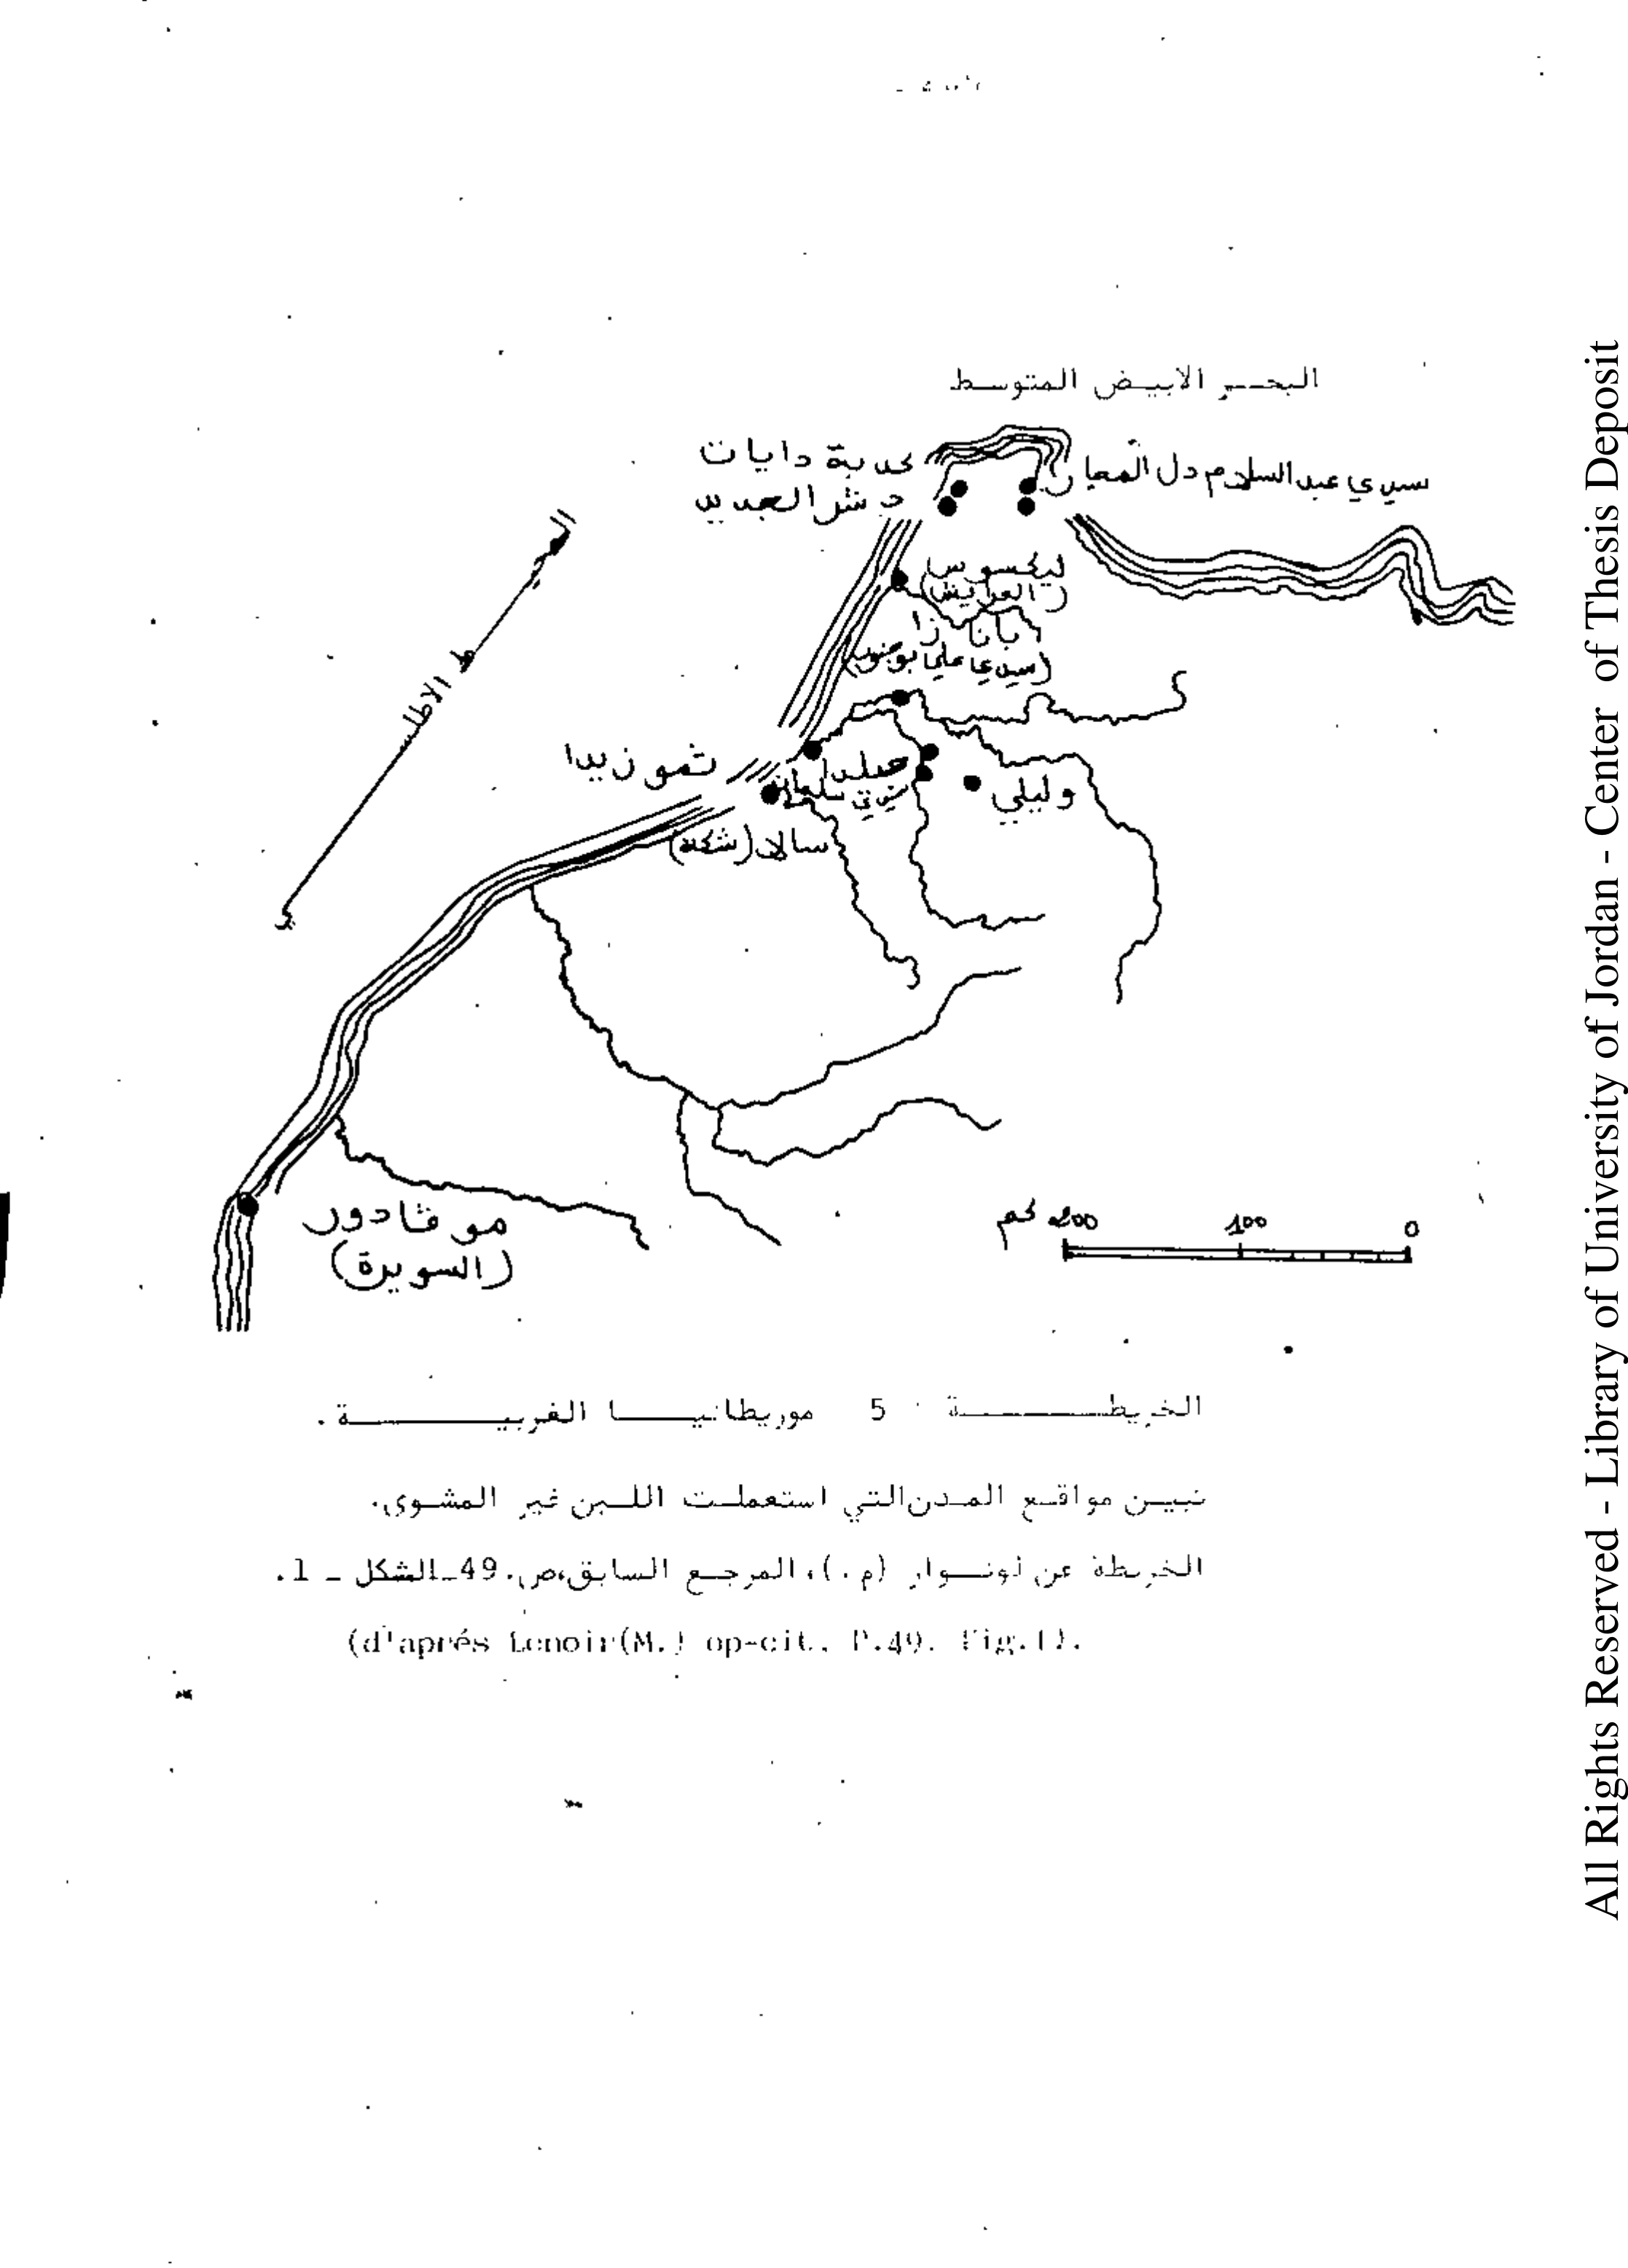 البحر الابيض المتوسط
كدية دايات
سيدي عبد السلام دل
دشر الجديد
ليكسوس
(العرايش)
بانازا
(سيدي علي بوجنون)
تموزيدا
جيلدا
وليلي
سالا (شكلة)
موقادور
(السويرة)
0 100 200 كم
الخريطة 5 موريطانيا الغربية.
نبين مواقع المدن التي استعملت اللبن غير المشوى.
الخريطة عن لونوار (م.)، المرجع السابق،ص.49ـالشكل ـ 1.
(d'aprés Lenoir(M.) op-cit. P.49. Fig.1).
All Rights Reserved - Library of University of Jordan - Center of Thesis Deposit